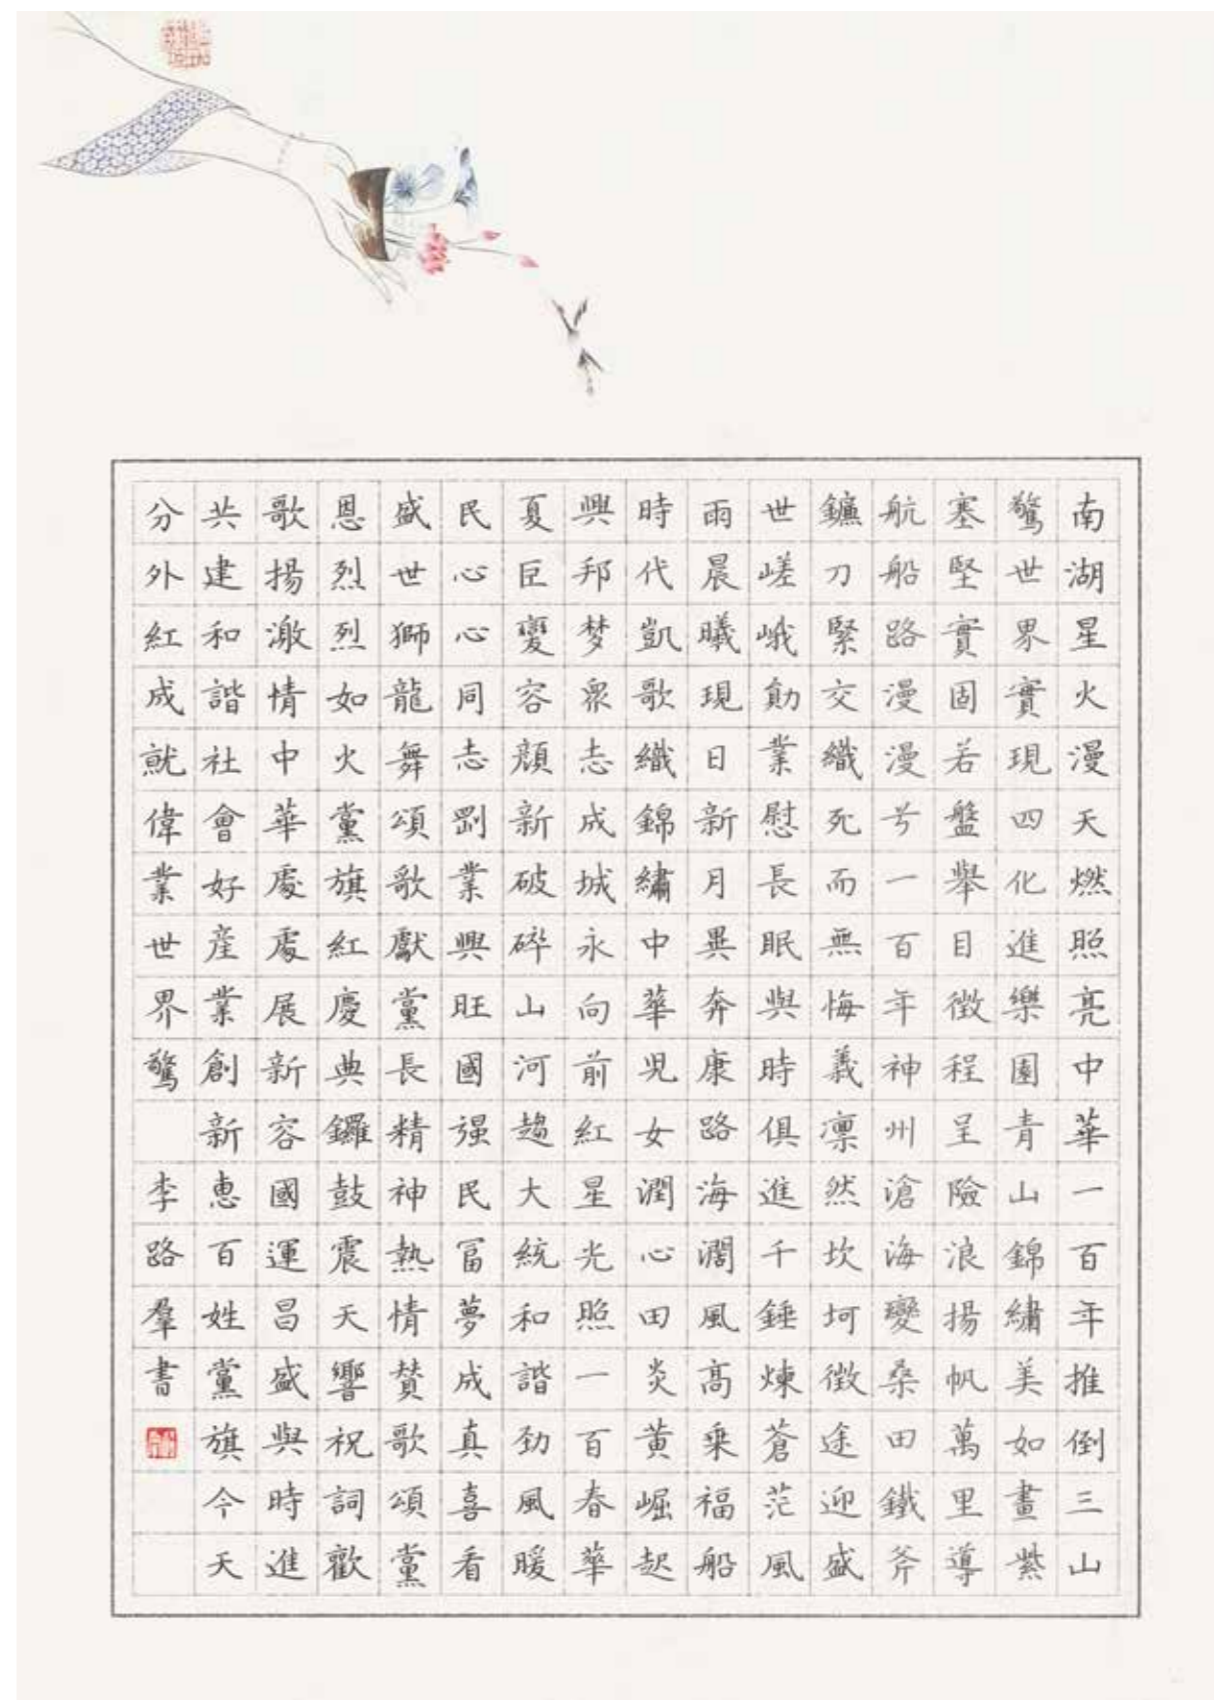 南湖星火漫天燃照亮中華一百年推倒三山
驚世界實現四化進樂園青山錦繡美如畫紫
塞堅實固若盤舉目徵程呈險浪揚帆萬里導
航船路漫漫兮一百年神州滄海變桑田鐵斧
鐮刀緊交織死而無悔義凛然坎坷徵途迎盛
世嵯峨勛業慰長眠與時俱進千錘煉蒼茫風
雨晨曦現日新月異奔康路海濶風高乘福船
時代凱歌織錦繡中華兒女潤心田炎黄崛起
興邦梦衆志成城永向前紅星光照一百春華
夏巨變容顔新破碎山河趨大統和諧勁風暖
民心心同志劃業興旺國强民富夢成真喜看
盛世獅龍舞頌歌獻黨長精神熱情贊歌頌黨
恩烈烈如火黨旗紅慶典鑼鼓震天響祝詞歡
歌揚激情中華處處展新容國運昌盛與時進
共建和諧社會好産業創新惠百姓黨旗今天
分外紅成就偉業世界驚 李路羣書